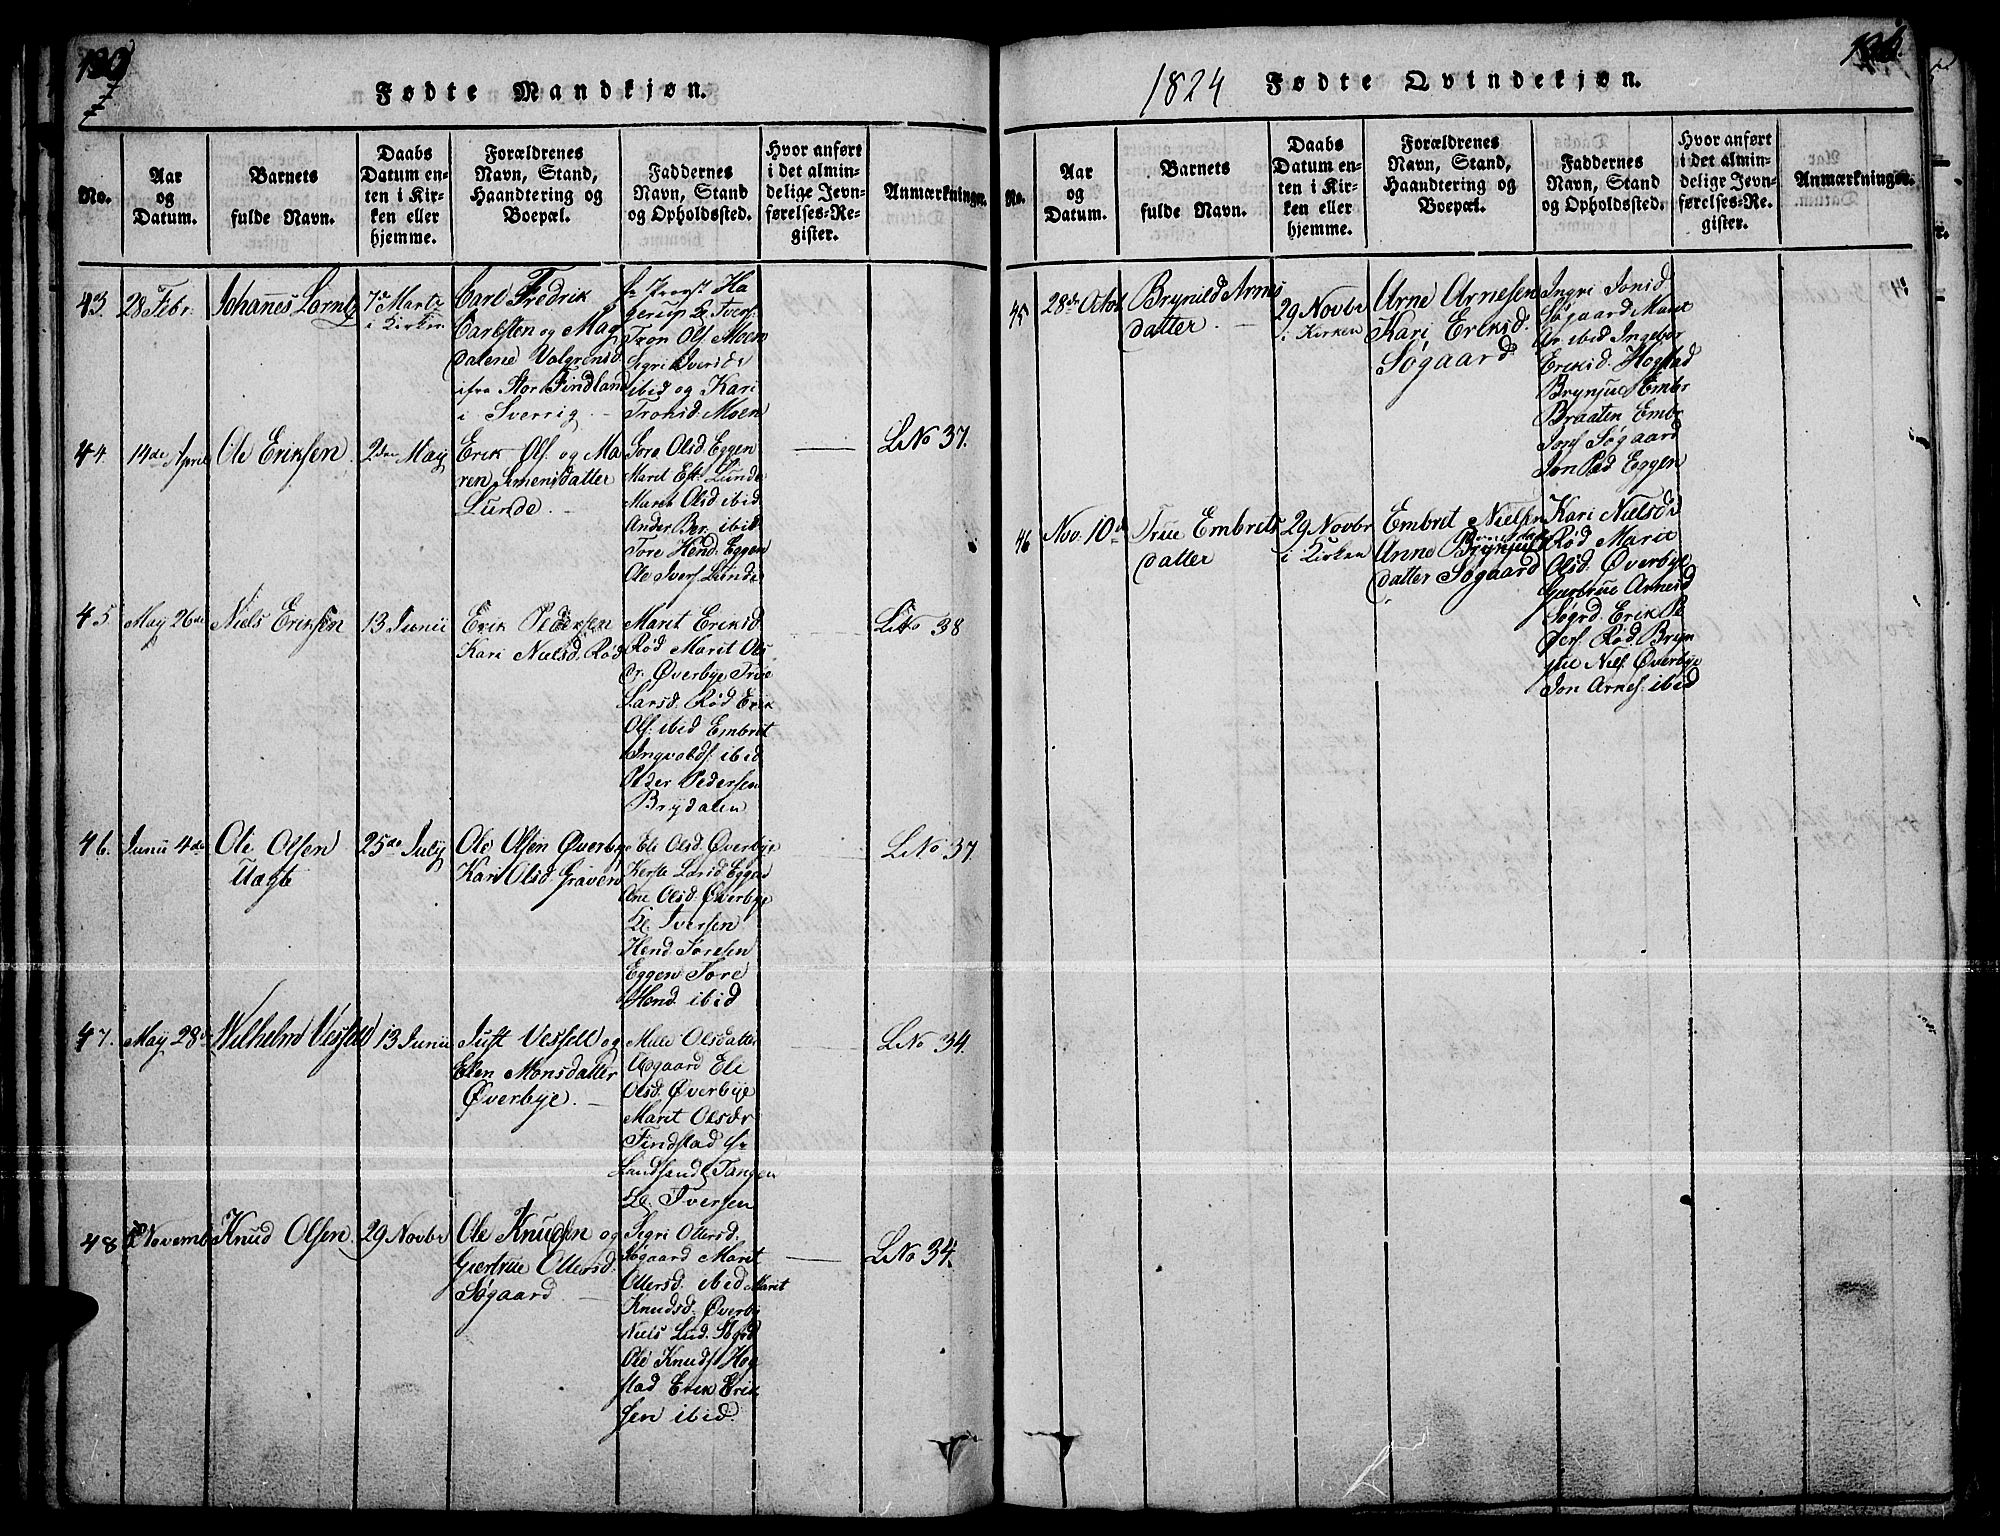 130
Fødte Mandkjøn.
No.
Aar
og
Datum.
Barnets
fulde Navn.
Daabs
Datum en-
ten i Kir-
ken eller
hjemme.
Forældrenes
Navn, Stand,
Haandtering og
Boepæl.
Faddernes
Navn, Stand
og Opholdssted.
Hvor anført
i det almin-
delige Jevn-
førelses-Re-
gister.
Anmærkninger.
43. 28 Febr.
Johannes Lorntz
7de Martz
i Kirken
Carl Fredrik
Carlsten og Mag
dalene Valgrensd
ifra Stor Findland
i Sverrig.
Hr Provst Ha
gerup Kl. Ivers.
Tron Ols. Moen
Sigri Iversdr
ibid og Kari
Tronsd. Moen
44. 14de April
Ole Eriksen
2den May
Erik Ols. og Ma
ren Simensdatter
Lunde.
Tora Olsd. Eggen
Maret Est. Lunde
Maret Olsd ibid
Ander Ber. ibid
Tore Hend. Eggen
Ole Ivers. Lunde
LNo 37.
45. May 26de
Niels Eriksen
13 Junii
Erik Pedersen
Kari Nielsd. Rød
Maret Eriksd.
Rød Marit Ols
dr. Øverbye Trøe
Larsd. Rød Erik
Ols. ibid Embret
Ingvolds. ibid
Peder Pedersen
Brydalen
LNo 38
46. Junii 4de
Ole Olsen
Uægte
25de July
Ole Olsen Øverby
Kari Olsd. Graven
Ele Olsd. Øverbye
Kerste Larsd. Eggen
Ane Olsd. Øverbye
Kl. Iversen
Hend Toresen
Eggen Tore
Hend. ibid
LNo 37.
47. May 28de
Wilhelm Vesseld
13 Junii
Just Vesseld og
Elen Monsdatter
Øverbye.
Mille Olsdatter
Aagaard Ele
Olsd. Øverbye
Marit Olsdr
Findstad Hr
Landsand Tangen
Kl. Iversen
LNo 34.
48 Novemb
Knud Olsen
29 Novbr
Ole Knudsen og
Gjertrue Ollersd.
Søgaard
Sigri Ollersd.
Søgaard Maret
Ollersd. ibid Maret
Knudsd. Øverby
Niels Lud. Søgrd
Ole Knuds. Hog
stad Erik Erik
sen ibid.
LNo 34.
1824
Fødte Qvindekjøn.
No.
Aar
og
Datum.
Barnets
fulde Navn.
Daabs
Datum en-
ten i Kir-
ken eller
hjemme.
Forældrenes
Navn, Stand,
Haandtering og
Boepæl.
Faddernes
Navn, Stand
og Opholdssted.
Hvor anført
i det almin-
delige Jevn-
førelses-Re-
gister.
Anmærkninger.
45 28de Octob
Brynild Arnes
datter.
29 Novbr
i Kirken
Arne Arnesen
Kari Eriksd.
Søgaard
Ingri Jonsd
Søgaard Maret
Ar. ibid Ingebor
Eriksd. Hogstad
Brynjul Embr
Braaten Embr
Jons. Søgaard
Jon Ped Eggen
46 Nov. 10de
True Embrets
datter
29 Novbr
i Kirken
Embret Nielsen
Anne Brynjuls
datter Søgaard
Kari Nielsdr
Rød Marie
Olsd. Øverbye
Giertrue Arnesd
Søgrd. Erik Pe
ders. Rød. Bryn
jul Niels. Øverbye
Jon Arnes. ibid